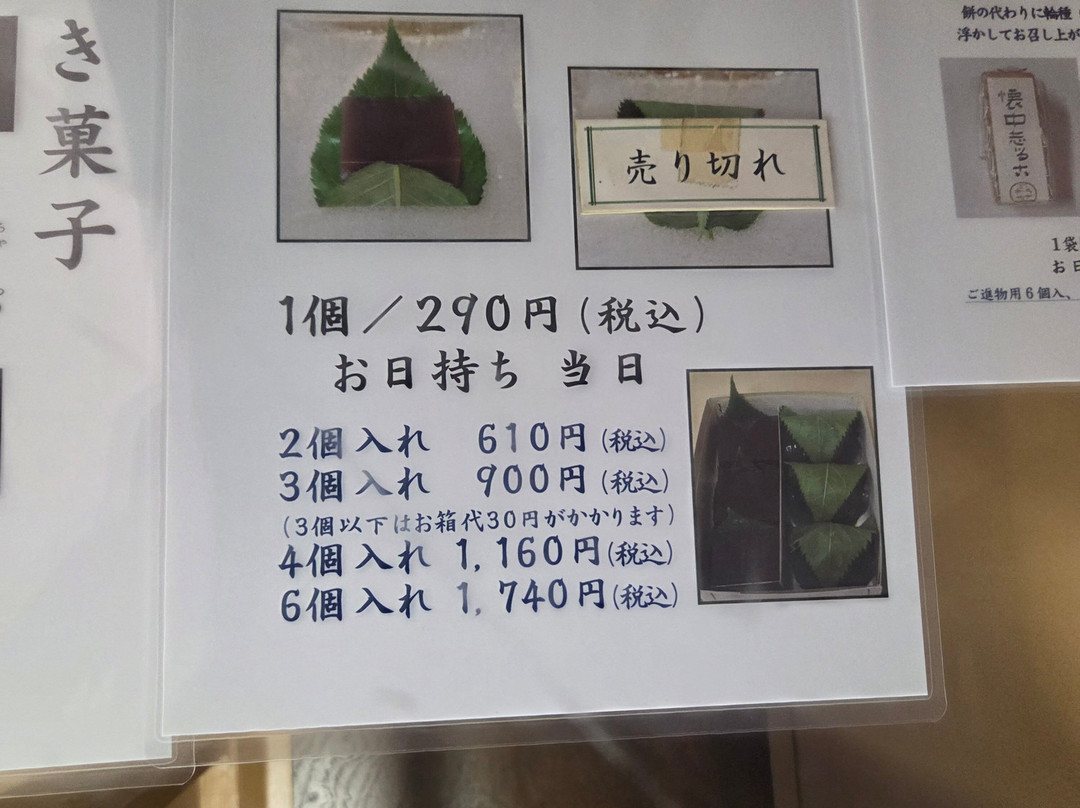 き菓子
売り切れ
1個／290円(税込)
お日持ち 当日
2個入れ 610円(税込)
3個入れ 900円(税込)
(3個以下はお箱代30円がかかります)
4個入れ 1,160円(税込)
6個入れ 1,740円(税込)
餅の代わりに輪種
浮かしてお召し上が
懐中志るこ
1袋
お日
ご進物用6個入、